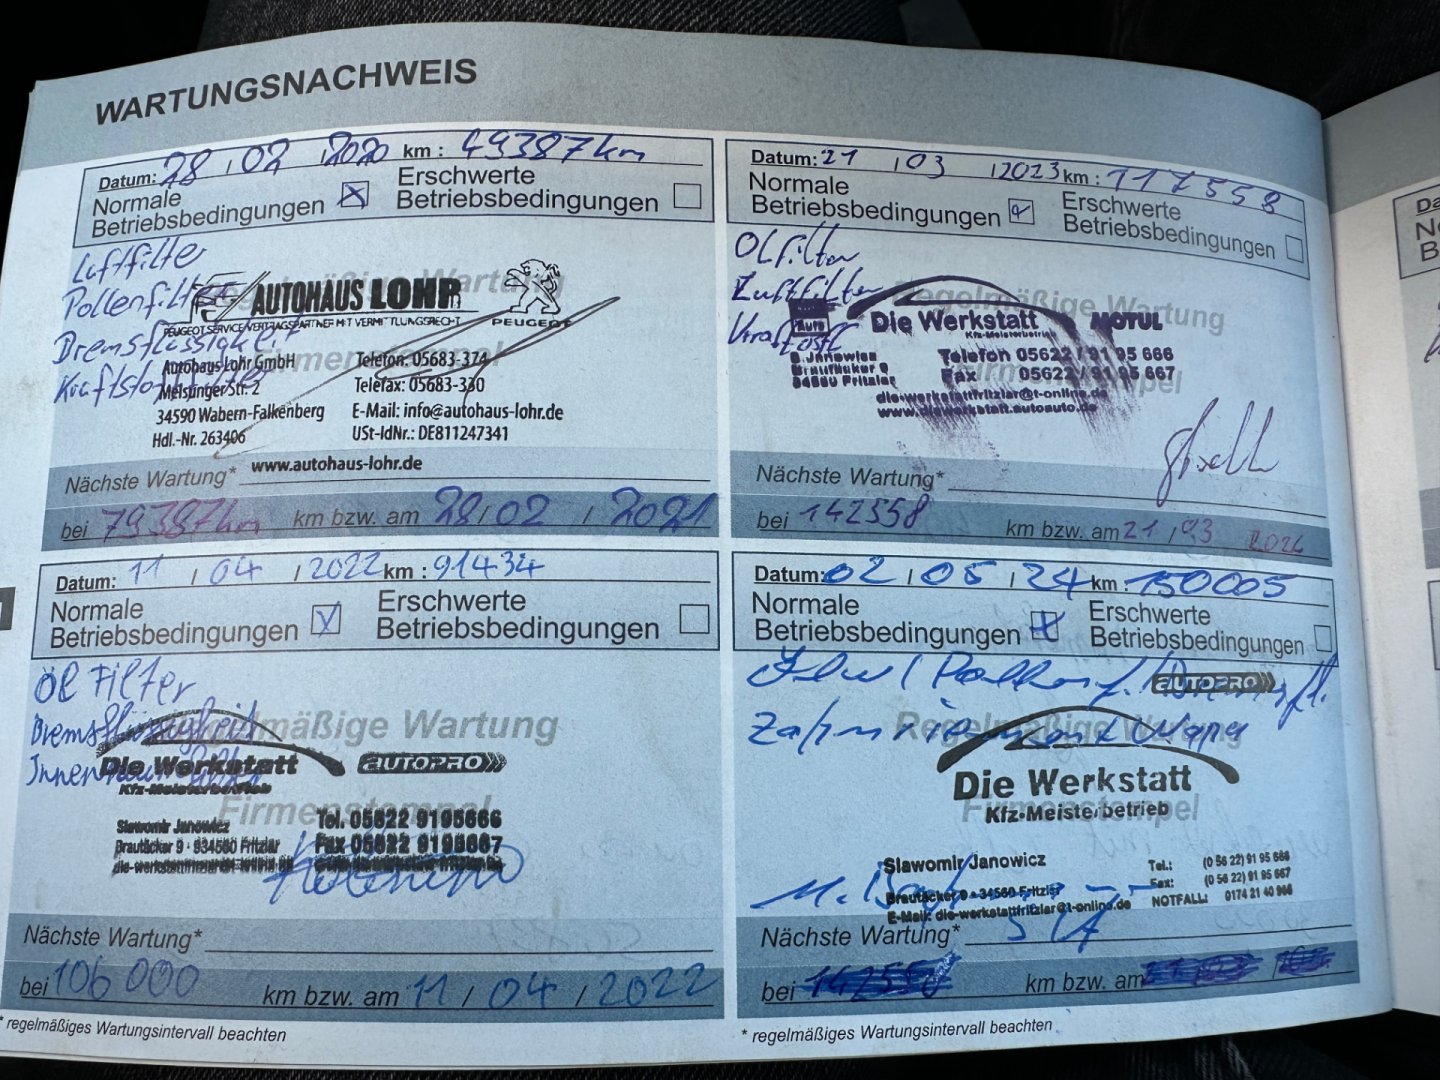 WARTUNGSNACHWEIS
Datum: 28 / 02 / 2020 km : 49387 km
Normale Betriebsbedingungen
Erschwerte Betriebsbedingungen
Luftfilter
Pollenfilter
Bremsflüssigkeit
Kraftstofffilter
Regelmäßige Wartung
AUTOHAUS LOHR
PEUGEOT
PEUGEOT SERVICE VERTRAGSPARTNER MIT VERMITTLUNGSRECHT
Firmenstempel
Autohaus Lohr GmbH Telefon: 05683-374
Melsunger Str. 2 Telefax: 05683-330
34590 Wabern-Falkenberg E-Mail: info@autohaus-lohr.de
Hdl.-Nr. 263406 USt-IdNr.: DE811247341
www.autohaus-lohr.de
Nächste Wartung*
bei 79387km km bzw. am 28 / 02 / 2021
Datum: 21 / 03 / 2023 km : 117558
Normale Betriebsbedingungen
Erschwerte Betriebsbedingungen
Ölfilter
Luftfilter
Regelmäßige Wartung
Auto Die Werkstatt MOTUL
Kfz-Meisterbetrieb
S. Janowicz Telefon 05622 / 91 95 666
Brautäcker 9 Fax 05622 / 91 95 667
34560 Fritzlar
die-werkstattfritzlar@t-online.de
www.diewerkstatt.autoauto.de
Nächste Wartung*
bei 142558 km bzw. am 21 / 03 2024
Datum: 11 / 04 / 2022 km : 91434
Normale Betriebsbedingungen
Erschwerte Betriebsbedingungen
Öl Filter
Bremsflüssigkeit
Regelmäßige Wartung
Die Werkstatt autoPRO
Kfz-Meisterbetrieb
Firmenstempel
Slawomir Janowicz Tel. 05622 9195666
Brautäcker 9 · 34560 Fritzlar Fax 05622 9195667
Nächste Wartung*
bei 106 000 km bzw. am 11 / 04 / 2022
* regelmäßiges Wartungsintervall beachten
Datum: 02 / 05 / 24 km : 150005
Normale Betriebsbedingungen
Erschwerte Betriebsbedingungen
autoPRO
Regelmäßige Wartung
Die Werkstatt
Firmenstempel
Kfz-Meisterbetrieb
Slawomir Janowicz Tel.: (0 56 22) 91 95 666
Brautäcker 9 · 34560 Fritzlar Fax: (0 56 22) 91 95 667
E-Mail: die-werkstattfritzlar@t-online.de NOTFALL: 0174 21 40 966
Nächste Wartung*
bei km bzw. am
* regelmäßiges Wartungsintervall beachten